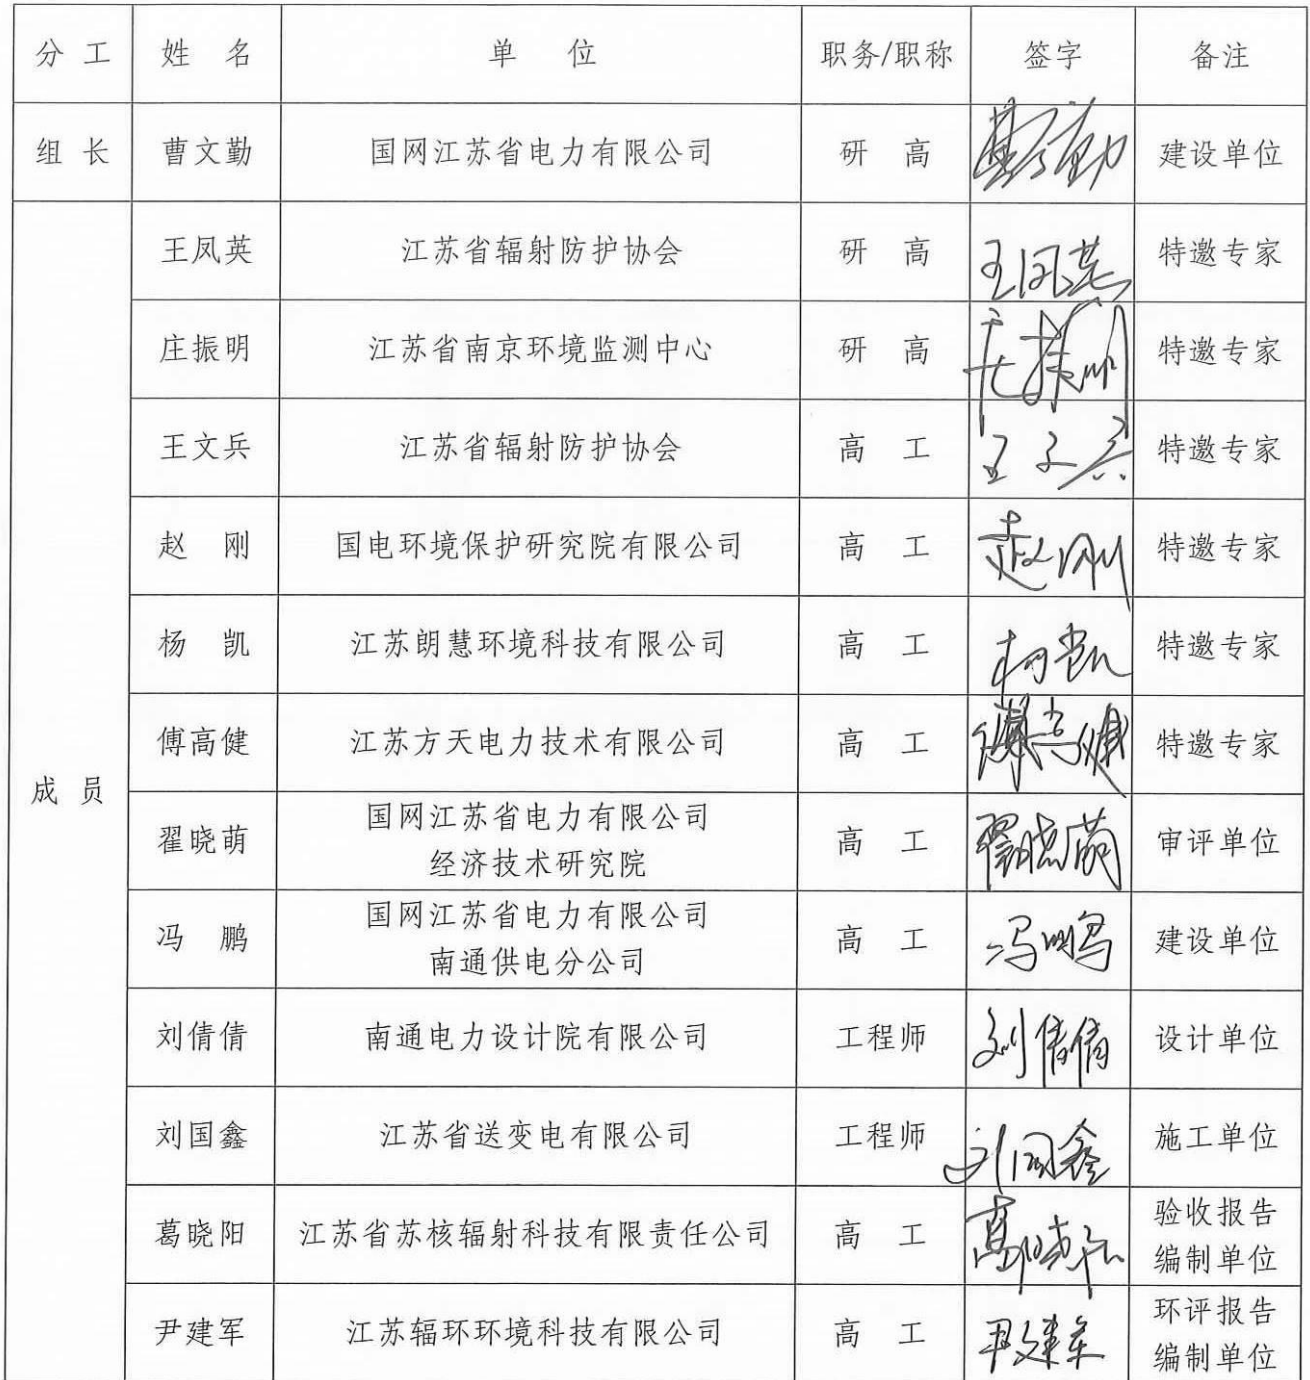 分工 姓名 单位 职务/职称 签字 备注
组长 曹文勤 国网江苏省电力有限公司 研高 曹文勤 建设单位
成员
王凤英 江苏省辐射防护协会 研高 王凤英 特邀专家
庄振明 江苏省南京环境监测中心 研高 庄振明 特邀专家
王文兵 江苏省辐射防护协会 高工 王文兵 特邀专家
赵刚 国电环境保护研究院有限公司 高工 赵刚 特邀专家
杨凯 江苏朗慧环境科技有限公司 高工 杨凯 特邀专家
傅高健 江苏方天电力技术有限公司 高工 傅高健 特邀专家
翟晓萌 国网江苏省电力有限公司
经济技术研究院 高工 翟晓萌 审评单位
冯鹏 国网江苏省电力有限公司
南通供电分公司 高工 冯鹏 建设单位
刘倩倩 南通电力设计院有限公司 工程师 刘倩倩 设计单位
刘国鑫 江苏省送变电有限公司 工程师 刘国鑫 施工单位
葛晓阳 江苏省苏核辐射科技有限责任公司 高工 葛晓阳 验收报告
编制单位
尹建军 江苏辐环环境科技有限公司 高工 尹建军 环评报告
编制单位